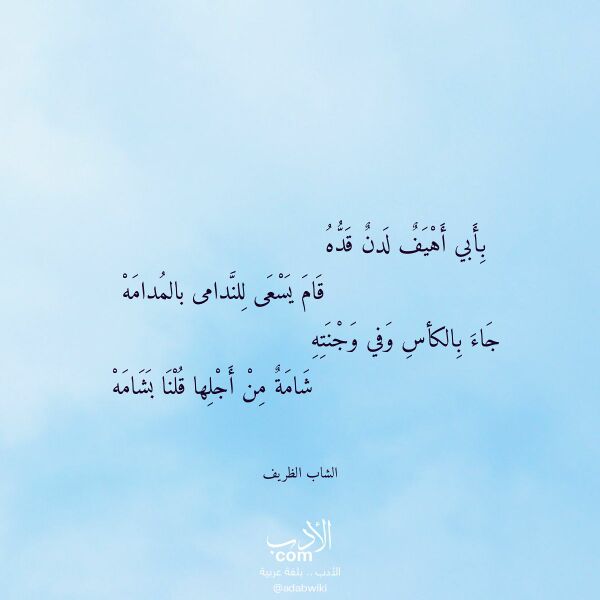 بِأَبي أَهْيَفٌ لَدنٌ قَدُّهُ
قَامَ يَسْعَى لِلنَّدامى بالمُدامَهْ
جَاءَ بِالكأسِ وَفي وَجْنَتِهِ
شَامَةٌ مِنْ أَجْلِها قُلْنَا بَشَامَهْ
الشاب الظريف
الأدب
.com
الأدب .. بلغة عربية
@adabwiki